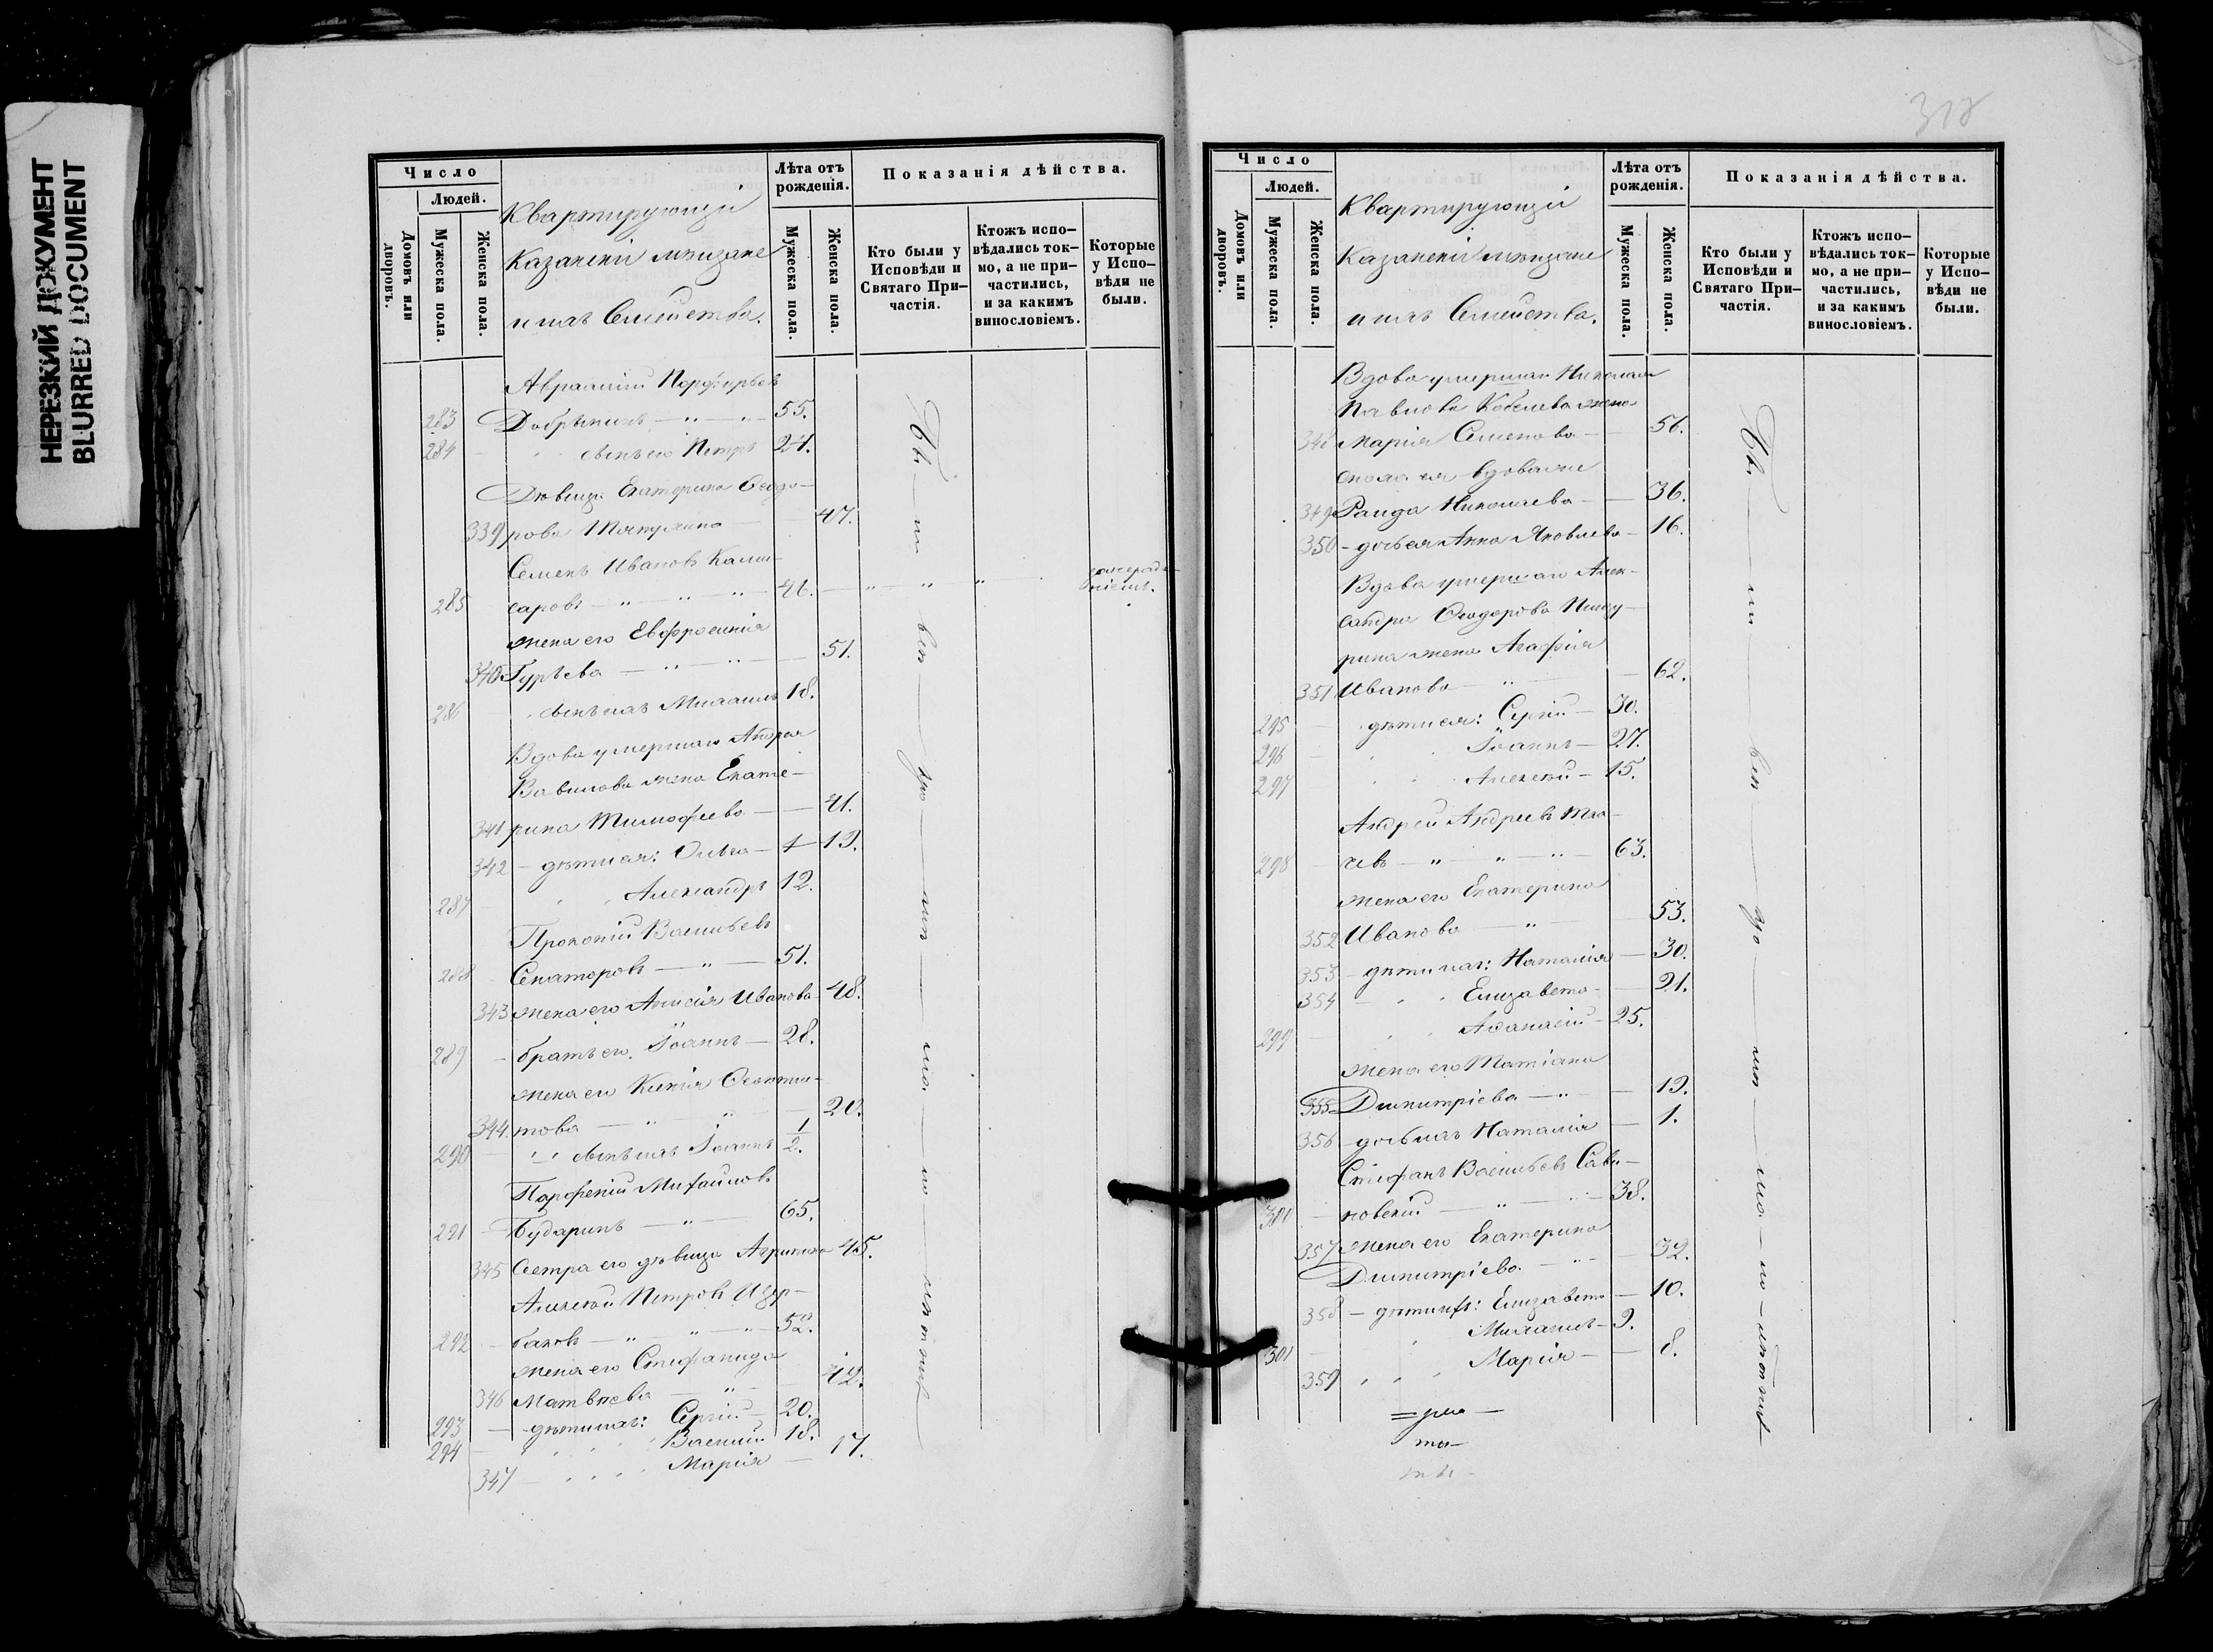 НЕРЕЗКИЙ ДОКУМЕНТ
BLURRED DOCUMENT
Число
Людей.
Домовъ или дворовъ.
Мужеска пола.
Женска пола.
Квартирующіи
Казанскіи мѣщане
и ихъ Семейства.
Лѣта отъ рожденія.
Мужеска пола.
Женска пола.
Показанія дѣйства.
Кто были у Исповѣди и Святаго Причастія.
Ктожъ исповѣдались токмо, а не причастились, и за какимъ винословіемъ.
Которые у Исповѣди не были.
Авраамій Порфирьевъ
283 Добрынинъ — " — " — 55.
284 сынъ его Петръ 24.
Дѣвица Екатерина Ѳеодо-
339 рова 47.
Семенъ Ивановъ
285 саровъ — " — " — " — 46. — " — " — "
жена его Евфросинія
340 Гурьева — " — " — 51.
286 сынъ ихъ Михаилъ 18.
Вдова умершаго Андрея
Вавилова жена Екате-
341 рина Тимофеева — 41.
342 - дѣти ея: Ольга — 19.
287 Александръ 12.
Прокопій Васильевъ
288 Сенаторовъ — " — 51.
343 жена его Анисія Иванова 48.
289 - братъ его Іоаннъ — 28.
жена его Ксенія Ѳеоктис-
344. това — " — " — 20.
290 сынъ ихъ Іоаннъ 1/2.
Парфеній Михайловъ
291 Бударинъ — " — 65.
345 Сестра его дѣвица Агрипина 45.
Алексѣй Петровъ Щер-
292 баковъ — " — " — " — 52.
жена его Стефанида
346 Матвѣева — " — 42.
293 — дѣти ихъ: Сергій — 20.
294 Василій 18.
347 Марія — 17.
318
Число
Людей.
Домовъ или дворовъ.
Мужеска пола.
Женска пола.
Квартирующіи
Казанскіи мѣщане
и ихъ Семейства.
Лѣта отъ рожденія.
Мужеска пола.
Женска пола.
Показанія дѣйства.
Кто были у Исповѣди и Святаго Причастія.
Ктожъ исповѣдались токмо, а не причастились, и за какимъ винословіемъ.
Которые у Исповѣди не были.
Вдова умершаго Николая
Павлова жена
348 Марія Семенова — 56.
сноха ея вдова же
349 Раида Николаева — 36.
350 - дочь ея Анна Яковлева — 16.
Вдова умершаго Алек-
сандра Ѳеодорова
рина жена Агафія
351 Иванова — " — 62.
295 дѣти ея: Сергій — 30.
296 Іоаннъ — 27.
297 Алексѣй — 15.
Андрей Андреевъ
298 " — " — " — 63.
жена его Екатерина
352 Иванова — " — 53.
353 - дѣти ихъ: Наталія — 30.
354 Елизавета — 21.
299 Аѳанасій — 25.
жена его Татіана
355 Димитріева — " — 19.
356 - дочь ихъ Наталія — 1.
Стефанъ Васильевъ Сави-
300 новскій — " — 38.
357 жена его Екатерина
Димитріева — " — 32.
358 — дѣти ихъ: Елизавета — 10.
301 Михаилъ — 9.
359 Марія — 8.